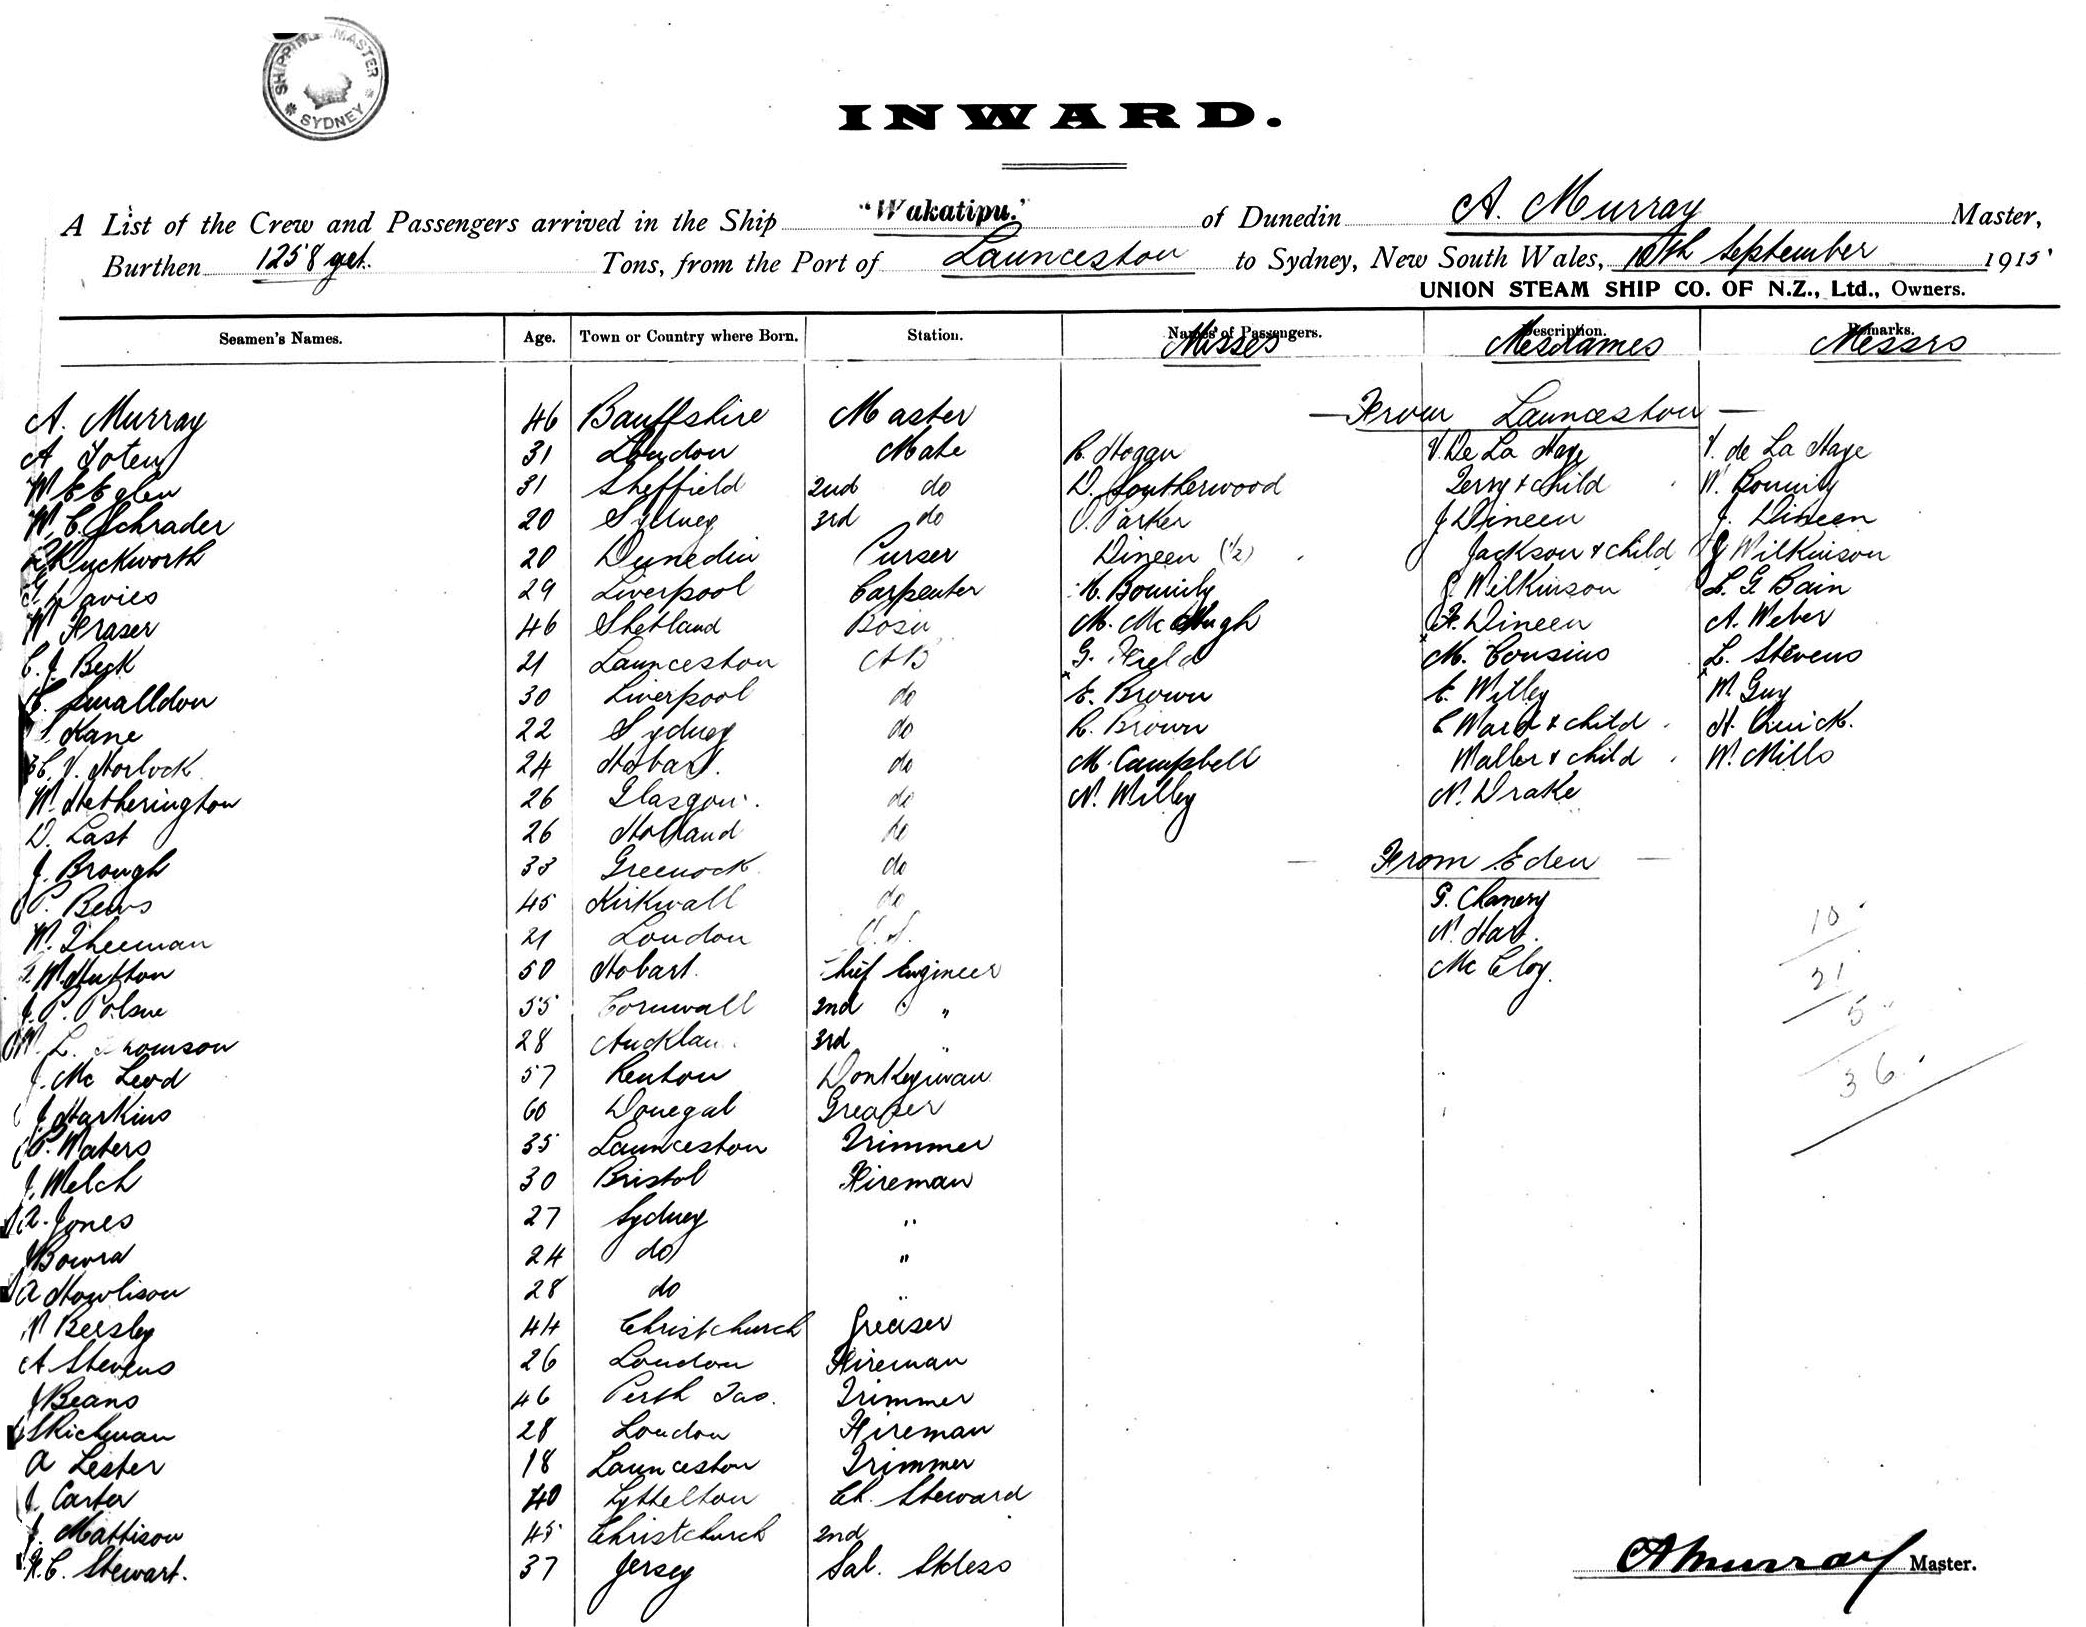 SHIPPING MASTER
* SYDNEY *
INWARD.
A List of the Crew and Passengers arrived in the Ship "Wakatipu." of Dunedin A. Murray Master,
Burthen 1258 Tons, from the Port of Launceston to Sydney, New South Wales, 10th September 1915
UNION STEAM SHIP CO. OF N.Z., Ltd., Owners.
Seamen's Names. Age. Town or Country where Born. Station. Names of Passengers. Description. Remarks.
Misses Mesdames Messrs
A. Murray 46 Banffshire Master — From Launceston —
A 31 London Mate R. Hogan V. De La Haye V. de La Haye
W E Eglen 31 Sheffield 2nd do D. Southerwood Terry & child W. Bonnily
W. C. Schrader 20 Sydney 3rd do Parker J Dineen J. Dineen
Duckworth 20 Dunedin Purser Dineen (1/2) Jackson & child J Wilkinson
Davies 29 Liverpool Carpenter Bonnily J. Wilkinson L. G. Bain
W Fraser 46 Shetland Bosn M. McHugh F. Dineen A. Weber
C. J. Beck 21 Launceston AB G. Field M. Cousins L. Stevens
Smalldon 30 Liverpool do E. Brown E. Willey M. Guy
Kane 22 Sydney do R. Brown C Ward & child H. Quick.
C. V. Horlock 24 Hobart. do M. Campbell Waller & child W. Mills
W. Hetherington 26 Glasgow. do N. Willey N. Drake
D. Last 26 Holland do
J. Brough 33 Greenock do — From Eden —
P. Bews 45 Kirkwall do G. Chanery
W. Theeman 21 London O.S. N. Hart.
W Hutton 50 Hobart. Chief Engineer Mc Cloy.
J. P. Polsue 55 Cornwall 2nd "
L. Thomson 28 Aucklan 3rd "
J. Mc Leod 57 Renton Donkeyman
J. Harkins 60 Donegal Greaser
P. Waters 35 Launceston Trimmer
J. Welch 30 Bristol Fireman
R. Jones 27 Sydney "
J Bowra 24 do "
A Howlison 28 do "
N Beesley 44 Christchurch Greaser
A Stevens 26 London Fireman
J Beans 46 Perth Tas. Trimmer
S Richman 28 London Fireman
A Lester 18 Launceston Trimmer
J. Carter 40 Lyttelton Ch. Steward
J. Mattison 45 Christchurch 2nd
F. C. Stewart. 37 Jersey Sal. Stdess
10
21
5
36
A Murray Master.